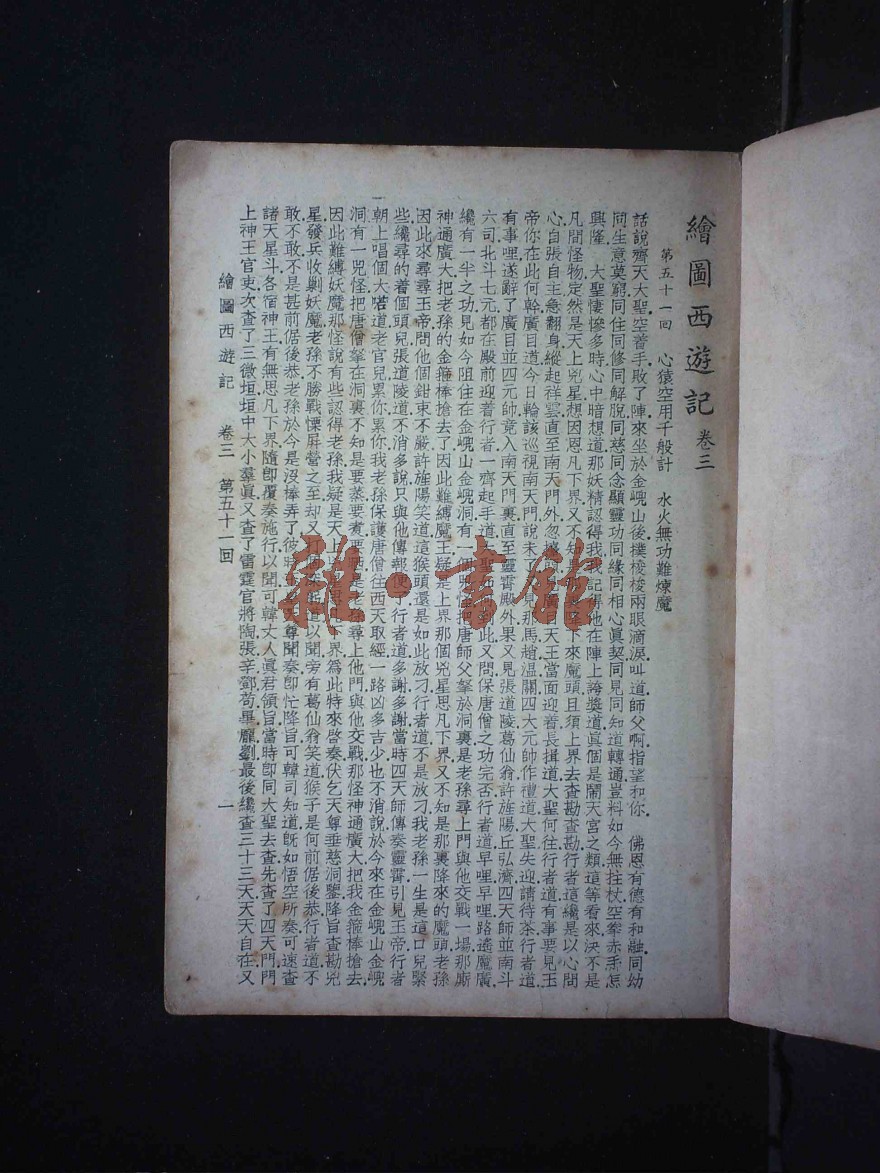 繪圖西遊記 卷三
第五十一回 心猿空用千般計 水火無功難煉魔
話說齊天大聖空着手敗了陣來坐於金㠋山後撲梭梭兩眼滴淚叫道師父啊指望和你 佛恩有德有和融同幼
同生意莫窮同住同修同解脫同慈同念顯靈功同緣同相心眞契同見同知道轉通豈料如今無拄杖空拳赤手怎
興隆 大聖悽慘多時心中暗想道那妖精認得我我記得他在陣上誇獎道眞個是鬧天宮之類這等看來決不是
凡間怪物定然是天上兇星想因思凡下界又不知 降下來魔頭且須上界去查勘查勘行者這纔是以心問
心自張自主急翻身縱起祥雲直至南天門外忽 廣 天王當面迎着長揖道大聖何往行者道有事要見玉
帝你在此何幹廣目道今日輪該巡視南天門說未了 見那馬趙溫關四大元帥作禮道大聖失迎請待茶行者道
有事哩遂辭了廣目並四元帥竟入南天門裏直至靈霄殿外果又見張道陵葛仙翁許旌陽丘弘濟四天師並南斗
六司北斗七元都在殿前迎着行者一齊起手道 聖 到此又問保唐僧之功完否行者道早哩早哩路遙魔廣
纔有一半之功見如今阻住在金㠋山金㠋洞有一 兕怪把唐師父拏於洞裏是老孫尋上門與他交戰一場那廝
神通廣大把老孫的金箍棒搶去了因此難縛魔王疑是上界那個兇星思凡下界又不知是那裏降來的魔頭老孫
因此來尋尋玉帝問他個鉗束不嚴許旌陽笑道這猴頭還是如此放刁行者道不是放刁我老孫一生是這口兒緊
些纔尋的着個頭兒張道陵道不消多說只與他傳報便了行者道多謝多謝當時四天師傳奏靈霄引見玉帝行者
朝上唱個大喏道老官兒累你累你我老孫保護唐僧往西天取經一路凶多吉少也不消說於今來在金㠋山金㠋
洞有一兕怪把唐僧拏在洞裏不知是要蒸要煮要晒是老孫尋上他門與他交戰那怪神通廣大把我金箍棒搶去
因此難縛妖魔那怪說有些認得老孫我疑是天上 下界爲此特來啓奏伏乞天尊垂慈洞鑒降旨查勘兇
星發兵收剿妖魔老孫不勝戰慄屛營之至却又打 道以聞旁有葛仙翁笑道猴子是何前倨後恭行者道不
敢不敢不是甚前倨後恭老孫於今是沒棒弄了彼時 天尊聞奏卽忙降旨可韓司知道旣如悟空所奏可速查
諸天星斗各宿神王有無思凡下界隨卽覆奏施行以聞可韓丈人眞君領旨當時卽同大聖去查先查了四天門門
上神王官吏次查了三微垣垣中大小羣眞又查了雷霆官將陶張辛鄧苟畢龐劉最後纔查三十三天天天自在又
繪圖西遊記 卷三 第五十一回 一
雜·書館